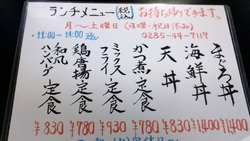 ランチメニュー 税込 お持ち帰りできます。
月～土曜日（日曜・祝日休み）
11:00～14:00 0285-44-7119
まぐろ丼 ¥1400
海鮮丼 ¥1400
天丼 ¥830
かつ煮定食 ¥780
ミックスフライ定食 ¥930
鶏唐揚定食 ¥780
和風ハンバーグ定食 ¥830